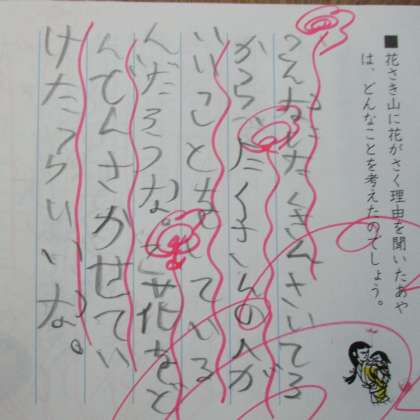 ■花さき山に花がさく理由を聞いたあや
は、どんなことを考えたのでしょう。
こんなにたくさんさいてる
から、たくさんの人が
いいことをしている
んだろうな。花をど
んどんさかせてい
けたらいいな。